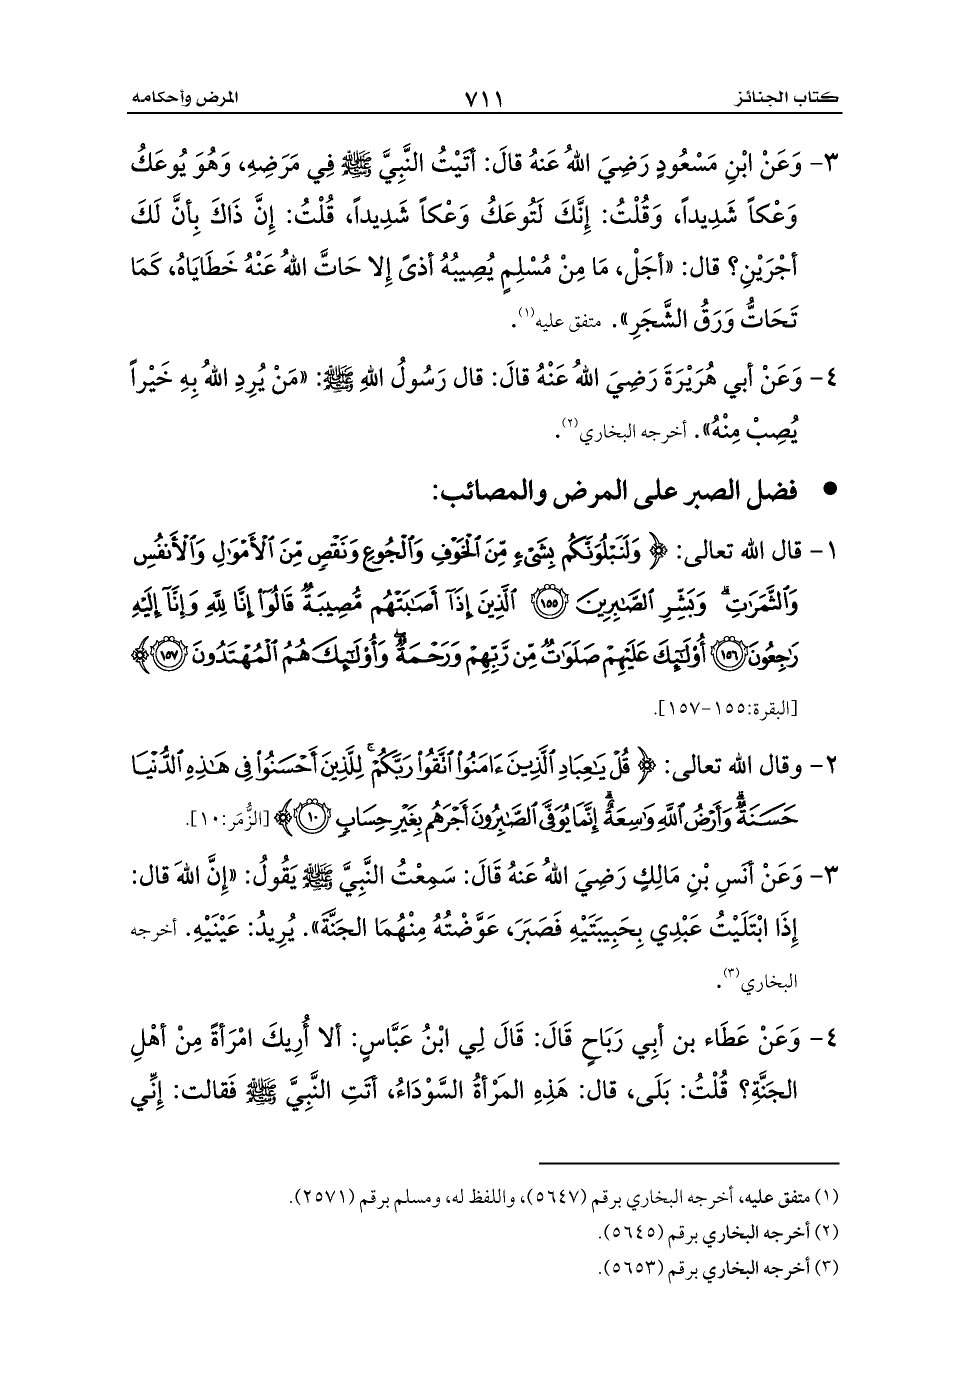 كتاب الجنائز ٧١١ المرض وأحكامه
٣- وَعَنْ ابْنِ مَسْعُودٍ رَضِيَ اللهُ عَنهُ قالَ: أتَيْتُ النَّبِيَّ ﷺ فِي مَرَضِهِ، وَهُوَ يُوعَكُ
وَعْكاً شَدِيداً، وَقُلْتُ: إنَّكَ لَتُوعَكُ وَعْكاً شَدِيداً، قُلْتُ: إنَّ ذَاكَ بِأنَّ لَكَ
أجْرَيْنِ؟ قال: «أجَلْ، مَا مِنْ مُسْلِمٍ يُصِيبُهُ أذىً إلا حَاتَّ اللهُ عَنْهُ خَطَايَاهُ، كَمَا
تَحَاتُّ وَرَقُ الشَّجَرِ». متفق عليه(١).
٤- وَعَنْ أبي هُرَيْرَةَ رَضِيَ اللهُ عَنْهُ قالَ: قال رَسُولُ اللهِ ﷺ: «مَنْ يُرِدِ اللهُ بِهِ خَيْراً
يُصِبْ مِنْهُ». أخرجه البخاري(٢).
● فضل الصبر على المرض والمصائب:
١- قال الله تعالى: ﴿وَلَنَبْلُوَنَّكُم بِشَىْءٍ مِّنَ ٱلْخَوْفِ وَٱلْجُوعِ وَنَقْصٍ مِّنَ ٱلْأَمْوَٰلِ وَٱلْأَنفُسِ
وَٱلثَّمَرَٰتِ ۗ وَبَشِّرِ ٱلصَّـٰبِرِينَ ١٥٥ ٱلَّذِينَ إِذَآ أَصَـٰبَتْهُم مُّصِيبَةٌ قَالُوٓا۟ إِنَّا لِلَّهِ وَإِنَّآ إِلَيْهِ
رَٰجِعُونَ ١٥٦ أُو۟لَـٰٓئِكَ عَلَيْهِمْ صَلَوَٰتٌ مِّن رَّبِّهِمْ وَرَحْمَةٌ ۖ وَأُو۟لَـٰٓئِكَ هُمُ ٱلْمُهْتَدُونَ ١٥٧﴾
[البقرة:١٥٥-١٥٧].
٢- وقال الله تعالى: ﴿قُلْ يَـٰعِبَادِ ٱلَّذِينَ ءَامَنُوا۟ ٱتَّقُوا۟ رَبَّكُمْ ۚ لِلَّذِينَ أَحْسَنُوا۟ فِى هَـٰذِهِ ٱلدُّنْيَا
حَسَنَةٌ ۗ وَأَرْضُ ٱللَّهِ وَٰسِعَةٌ ۗ إِنَّمَا يُوَفَّى ٱلصَّـٰبِرُونَ أَجْرَهُم بِغَيْرِ حِسَابٍ ١٠﴾ [الزُّمَر:١٠].
٣- وَعَنْ أنَسِ بْنِ مَالِكٍ رَضِيَ اللهُ عَنهُ قَالَ: سَمِعْتُ النَّبِيَّ ﷺ يَقُولُ: «إنَّ اللهَ قال:
إذَا ابْتَلَيْتُ عَبْدِي بِحَبِيبَتَيْهِ فَصَبَرَ، عَوَّضْتُهُ مِنْهُمَا الجَنَّةَ». يُرِيدُ: عَيْنَيْهِ. أخرجه
البخاري(٣).
٤- وَعَنْ عَطَاء بن أبِي رَبَاحٍ قَالَ: قَالَ لِي ابْنُ عَبَّاسٍ: ألا أُرِيكَ امْرَأةً مِنْ أهْلِ
الجَنَّةِ؟ قُلْتُ: بَلَى، قال: هَذِهِ المَرْأةُ السَّوْدَاءُ، أتَتِ النَّبِيَّ ﷺ فَقالت: إنِّي
(١) متفق عليه، أخرجه البخاري برقم (٥٦٤٧)، واللفظ له، ومسلم برقم (٢٥٧١).
(٢) أخرجه البخاري برقم (٥٦٤٥).
(٣) أخرجه البخاري برقم (٥٦٥٣).